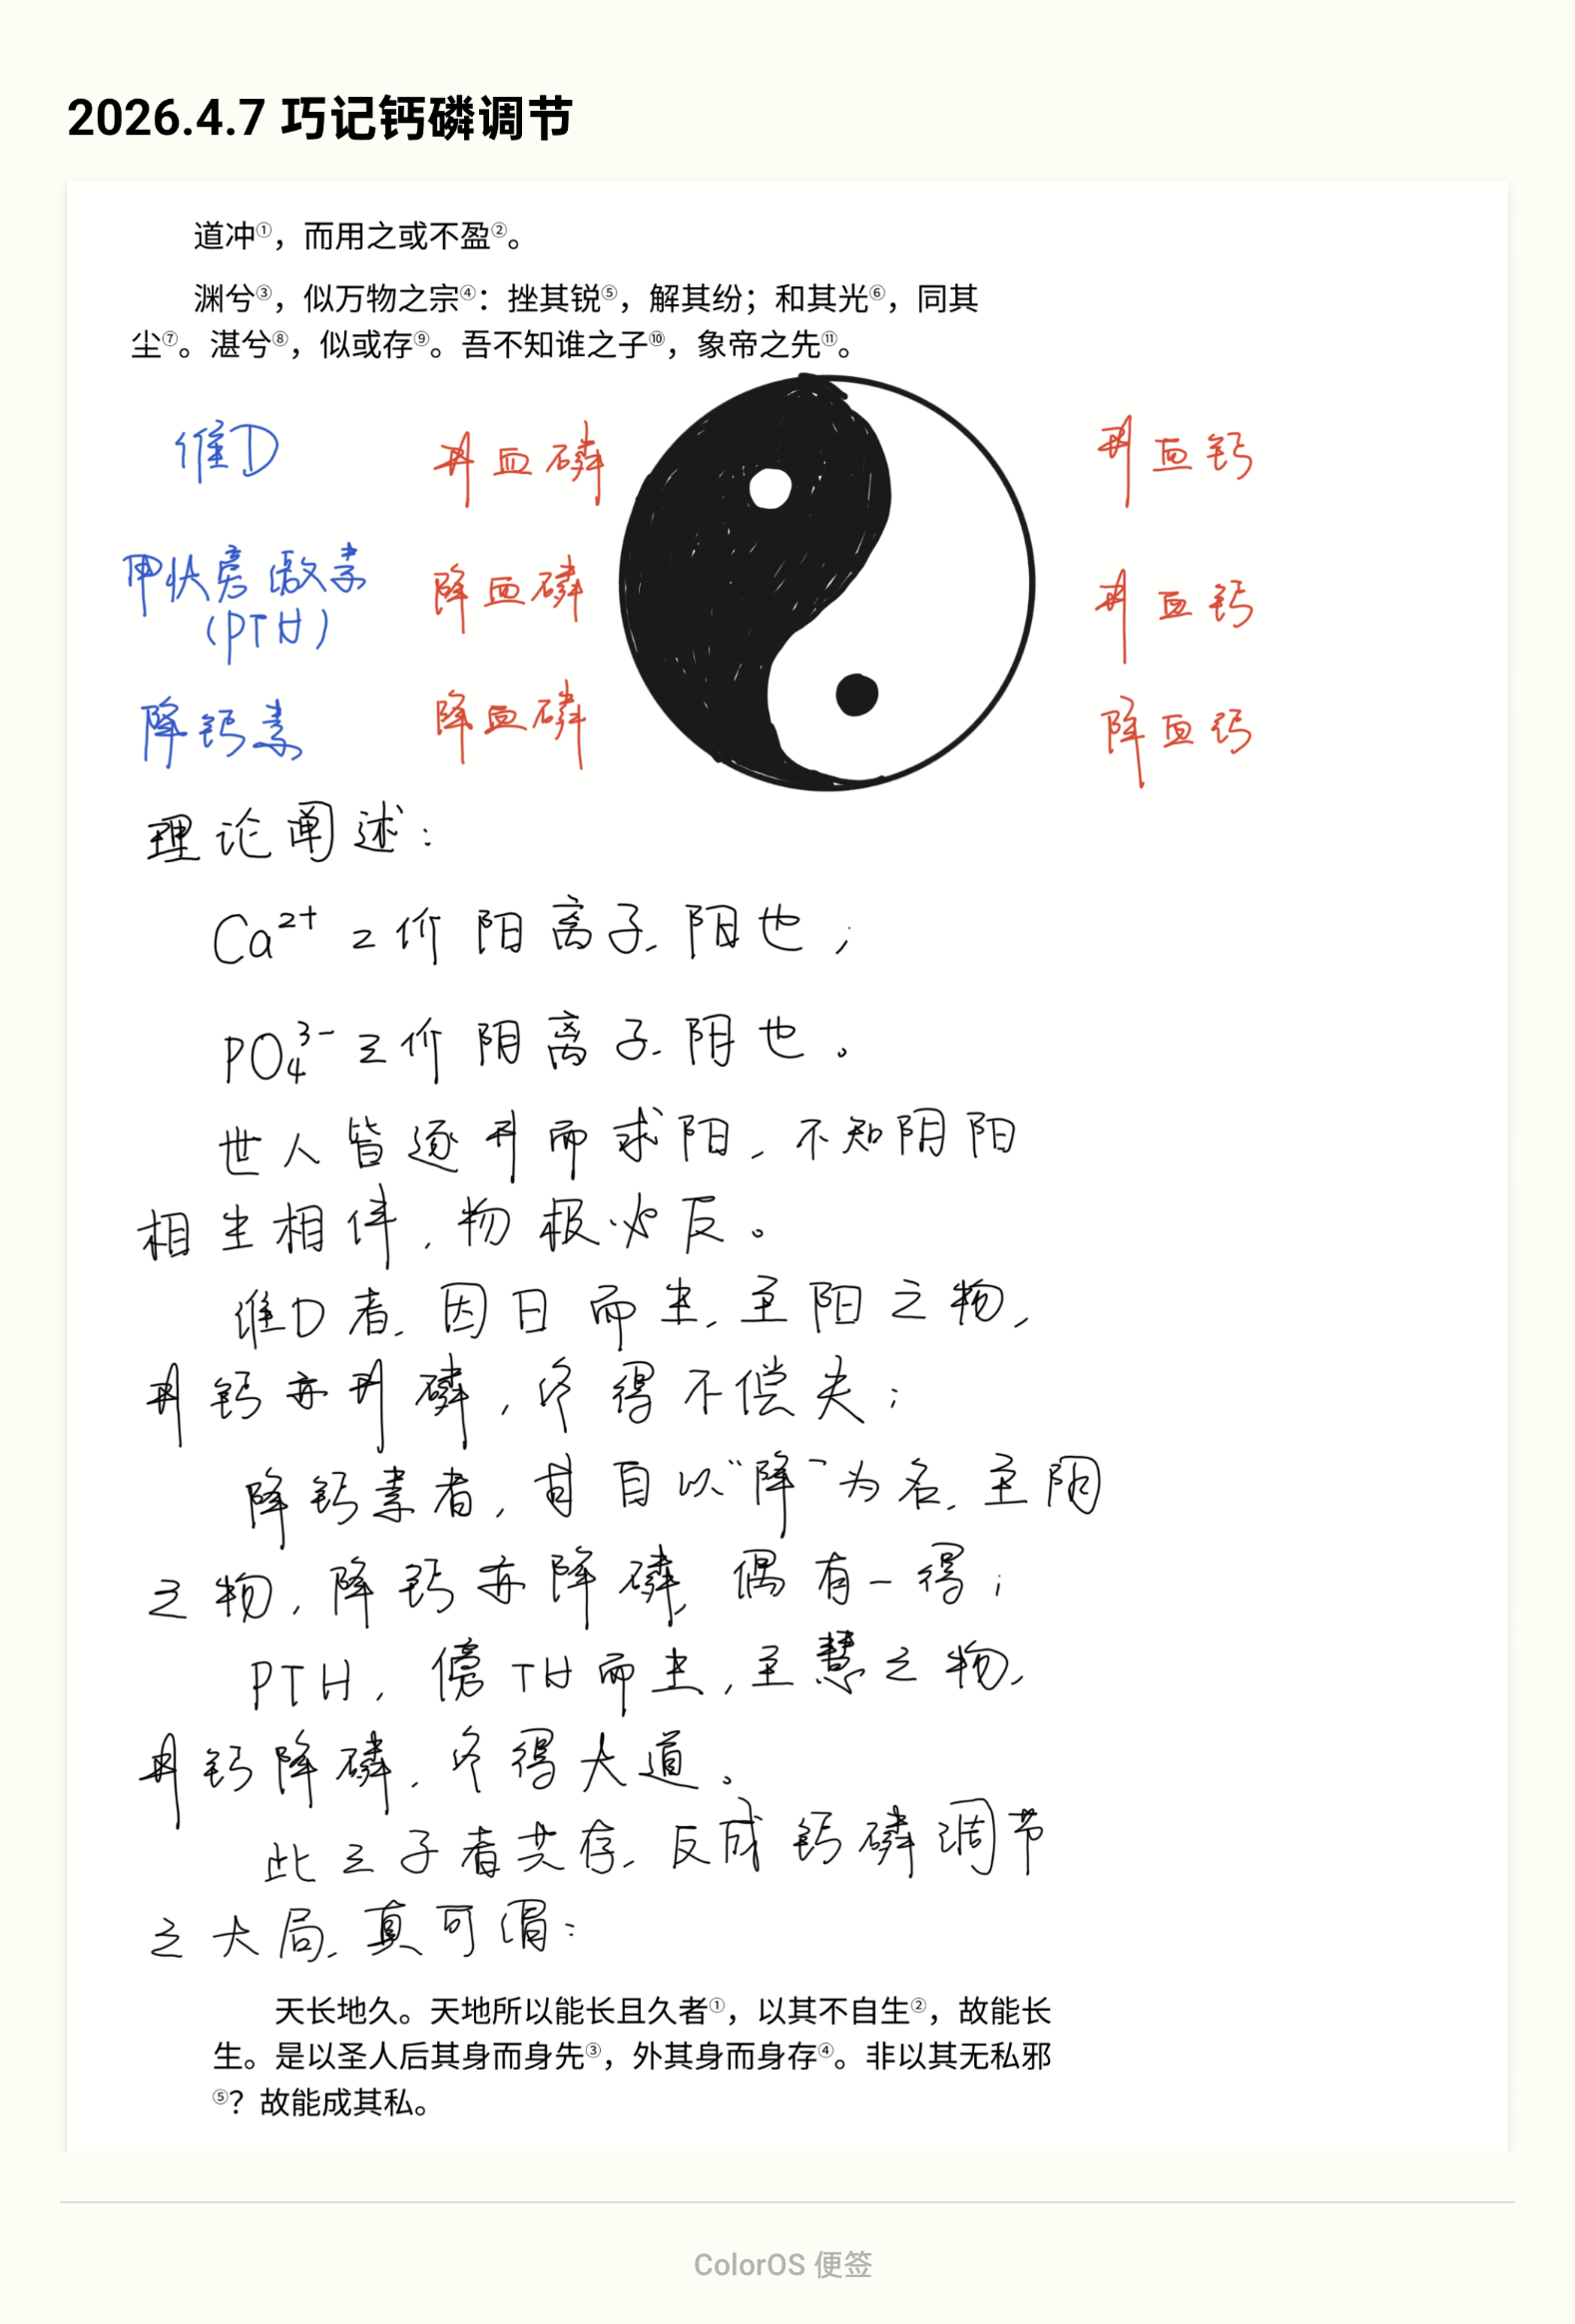 2026.4.7 巧记钙磷调节
道冲①，而用之或不盈②。
渊兮③，似万物之宗④：挫其锐⑤，解其纷；和其光⑥，同其
尘⑦。湛兮⑧，似或存⑨。吾不知谁之子⑩，象帝之先⑪。
维D 升血磷 升血钙
甲状旁腺激素 降血磷 升血钙
(PTH)
降钙素 降血磷 降血钙
理论阐述：
Ca²⁺ 二价阳离子，阳也；
PO₄³⁻ 三价阴离子，阴也。
世人皆逐升而求阳，不知阴阳
相生相伴，物极必反。
维D者，因日而生，至阳之物，
升钙亦升磷，终得不偿失；
降钙素者，甘自以“降”为名，至阴
之物，降钙亦降磷，偶有一得；
PTH，傍TH而生，至慧之物，
升钙降磷，终得大道。
此三子者共存，反成钙磷调节
之大局，真可谓：
天长地久。天地所以能长且久者①，以其不自生②，故能长
生。是以圣人后其身而身先③，外其身而身存④。非以其无私邪
⑤？故能成其私。
ColorOS 便签